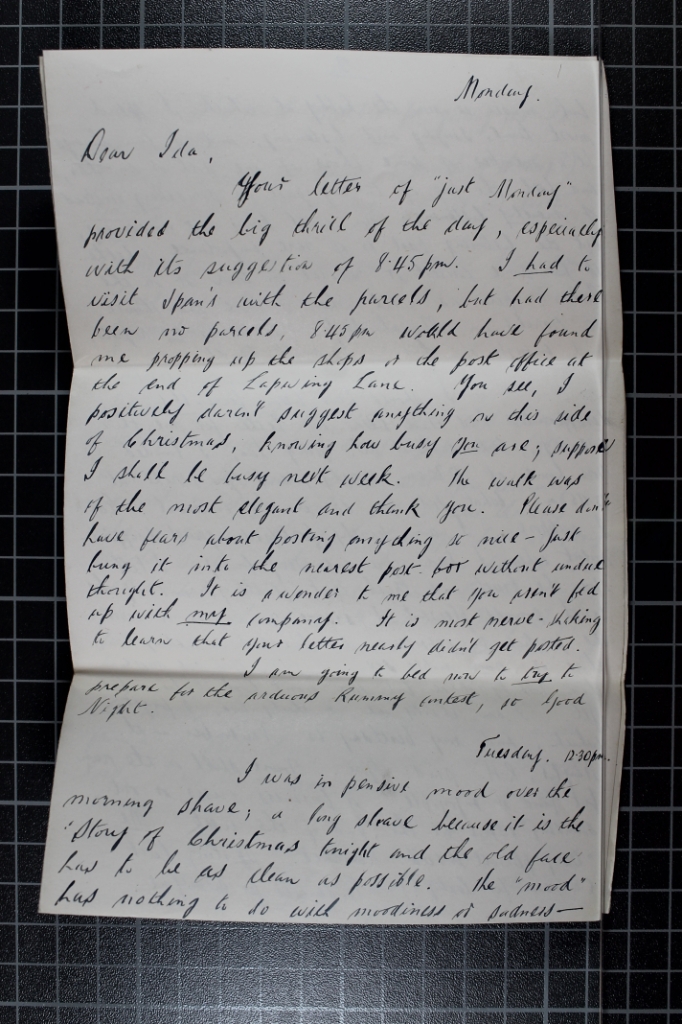 Monday.
Dear Ida,
Your letter of "just Monday"
provided the big thrill of the day, especially
with its suggestion of 8.45pm. I had to
visit Ipan's with the parcels, but had there
been no parcels, 8.45pm would have found
me propping up the shops or the post office at
the end of Lapwing Lane. You see, I
positively daren't suggest anything on this side
of Christmas, knowing how busy you are; suppose
I shall be busy next week. The walk was
of the most elegant and thank you. Please don't
have fears about posting anything so nice - just
bung it into the nearest post box without undue
thought. It is a wonder to me that you aren't fed
up with my company. It is most nerve-shaking
to learn that your letter nearly didn't get posted.
I am going to bed now to try to
prepare for the arduous Rummy contest, so Good
Night.
Tuesday. 12.30pm.
I was in pensive mood over the
morning shave; a long shave because it is the
'Story of Christmas tonight and the old face
has to be as clean as possible. The "mood"
has nothing to do with moodiness or sadness—